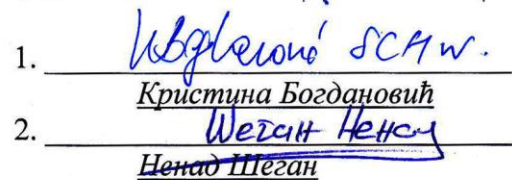 1.
Кристина Богдановић
2. Шеган Ненад
Ненад Шеган